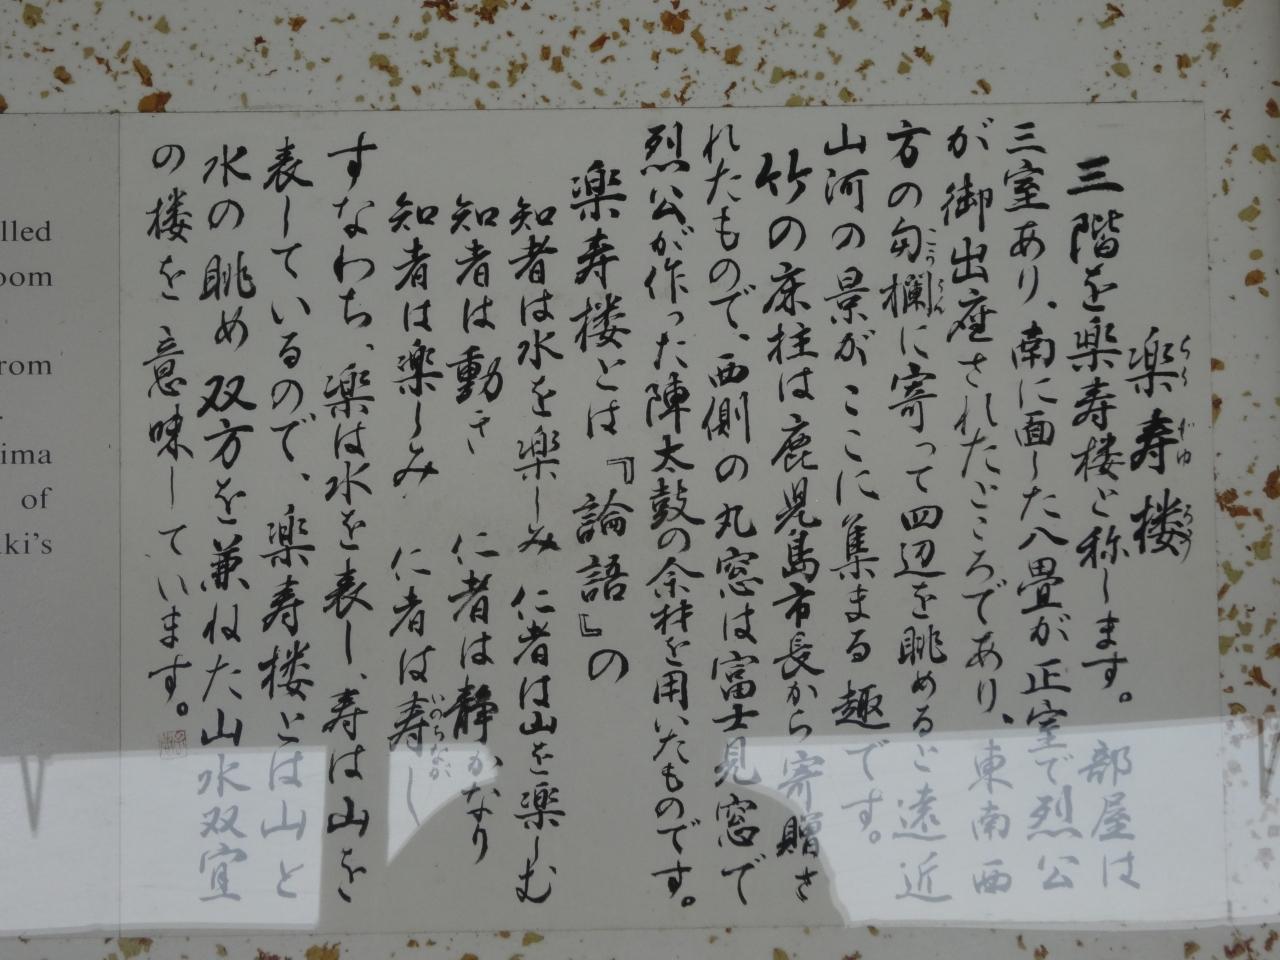 楽寿楼
らくじゅろう
三階を楽寿楼と称します。部屋は
三室あり、南に面した八畳が正室で烈公
が御出座されたところであり、東南西
方の匂欄に寄って四辺を眺めると遠近
こうらん
山河の景がここに集まる趣です。
竹の床柱は鹿児島市長から寄贈さ
れたもので、西側の丸窓は富士見窓で
烈公が作った陣太鼓の余材を用いたものです。
楽寿楼とは『論語』の
知者は水を楽しみ 仁者は山を楽しむ
知者は動き 仁者は静かなり
知者は楽しみ 仁者は寿し
いのちなが
すなわち、楽は水を表し、寿は山を
表しているので、楽寿楼とは山と
水の眺め双方を兼ねた山水双宜
の楼を意味しています。
lled
oom
rom
ima
of
aki's